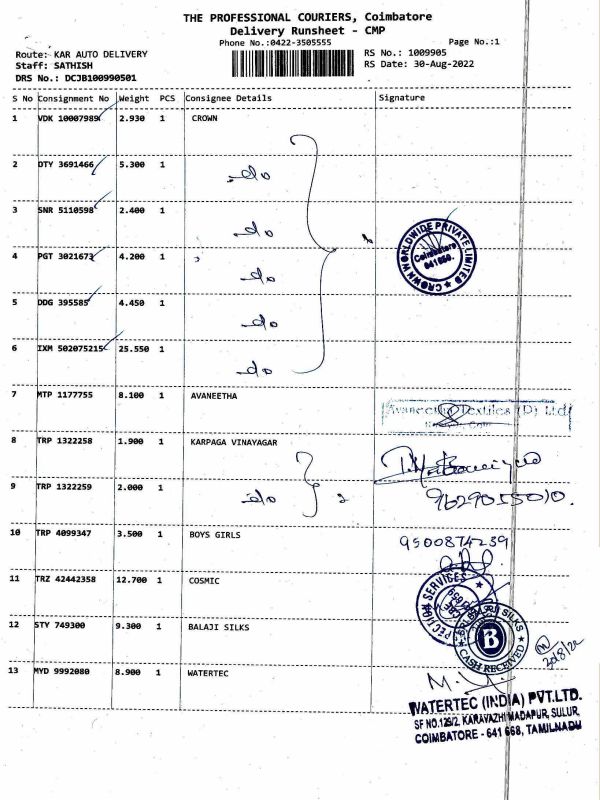 THE PROFESSIONAL COURIERS, Coimbatore
Delivery Runsheet - CMP
Phone No.:0422-3505555
Page No.:1
Route: KAR AUTO DELIVERY
RS No.: 1009905
Staff: SATHISH
RS Date: 30-Aug-2022
DRS No.: DCJB100990501
S No Consignment No Weight PCS Consignee Details Signature
1 VDK 10007989 2.930 1 CROWN
2 DTY 3691466 5.300 1 do
3 SNR 5110598 2.400 1 do
4 PGT 3021673 4.200 1 do
5 DDG 395585 4.450 1 do
6 IXM 502075215 25.550 1 do
CROWN WORLDWIDE PRIVATE LIMITED
Coimbatore
641659.
7 MTP 1177755 8.100 1 AVANEETHA
Avaneetha Textiles (P) Ltd
8 TRP 1322258 1.900 1 KARPAGA VINAYAGAR
9 TRP 1322259 2.000 1 do 2
10 TRP 4099347 3.500 1 BOYS GIRLS
9500874239
11 TRZ 42442358 12.700 1 COSMIC
12 STY 749300 9.300 1 BALAJI SILKS
B
CASH RECEIVED
13 MYD 9992080 8.900 1 WATERTEC
WATERTEC (INDIA) PVT.LTD.
SF NO.129/2, KARAVAZHI MADAPUR, SULUR,
COIMBATORE - 641 668, TAMILNADU